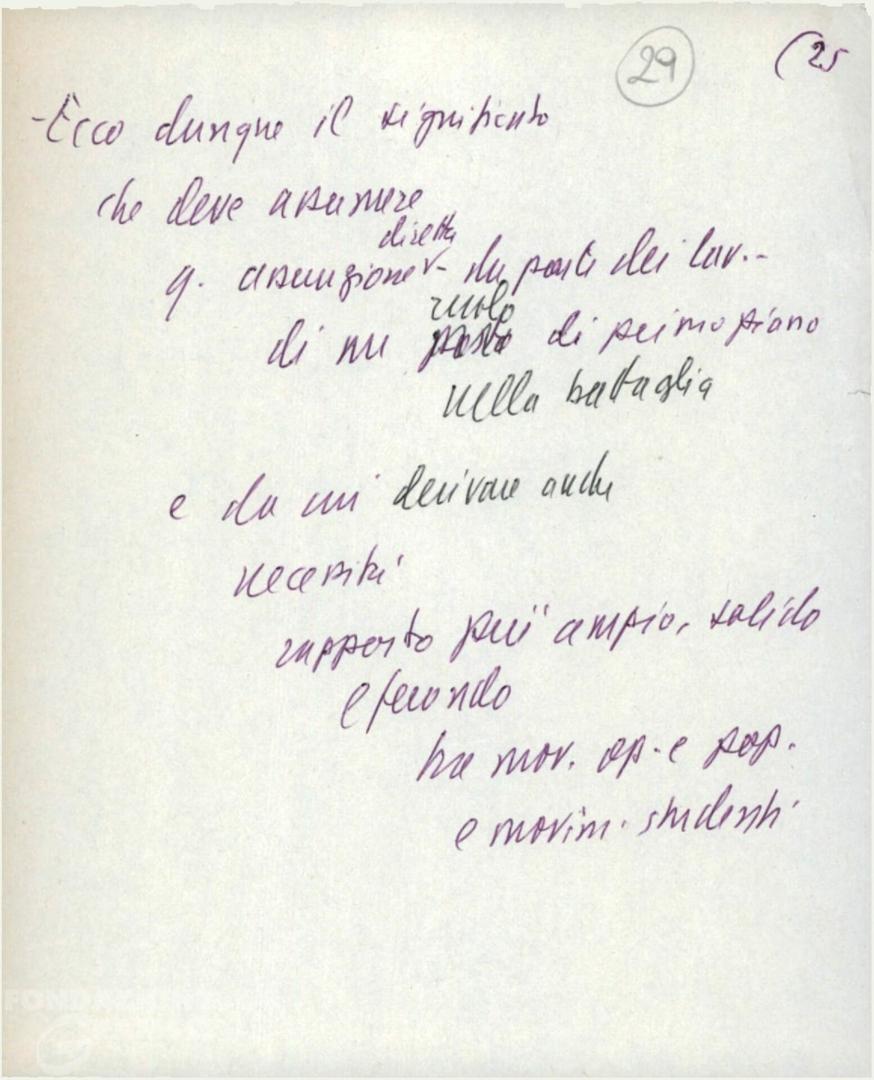 29 (25
- Ecco dunque il significato
che deve assumere
diretta
q. assunzione da parte dei lav. -
ruolo
di un posto di primo piano
nella battaglia
e da cui derivare anche
necessità
rapporto più ampio, solido
e fecondo
tra mov. op. e pop.
e movim. studenti
FONDAZIONE